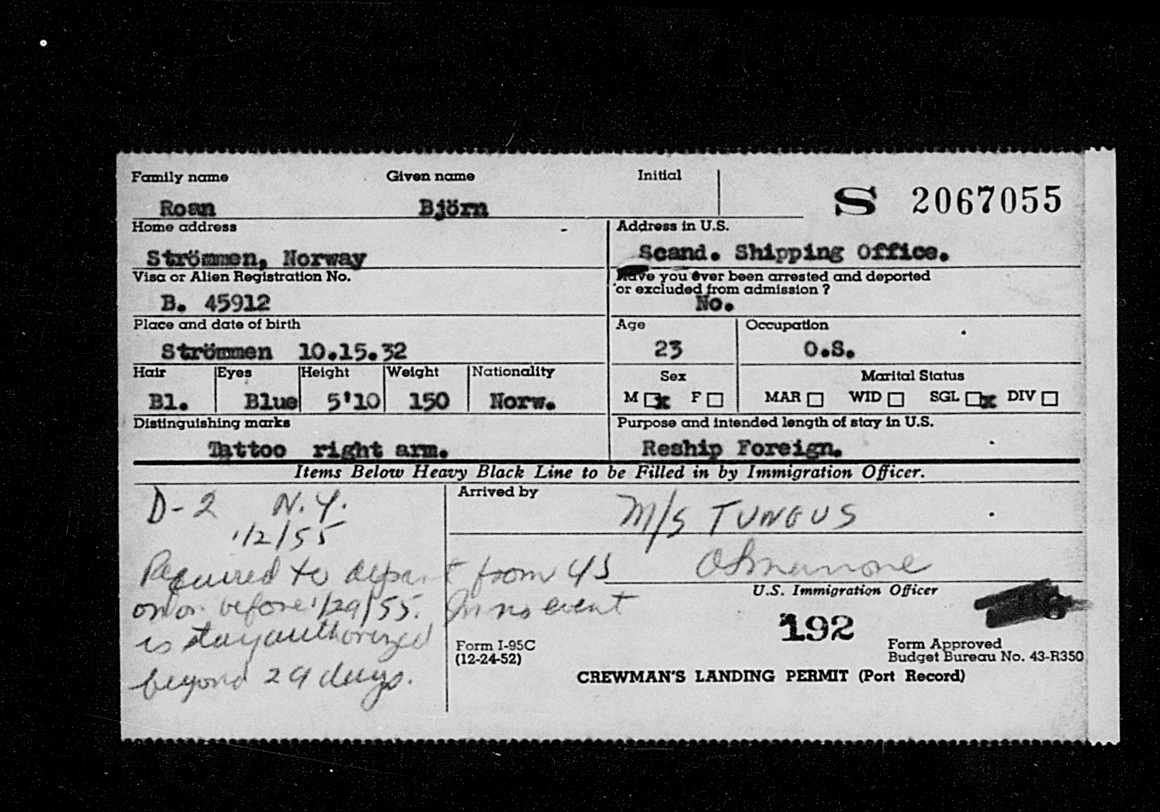 Family name Given name Initial
S 2067055
Roan Björn
Home address Address in U.S.
Strömmen, Norway Scand. Shipping Office.
Visa or Alien Registration No. Have you ever been arrested and deported
or excluded from admission ?
B. 45912 No.
Place and date of birth Age Occupation
Strömmen 10.15.32 23 O.S.
Hair Eyes Height Weight Nationality Sex Marital Status
Bl. Blue 5'10 150 Norw. M F MAR WID SGL DIV
x x
Distinguishing marks Purpose and intended length of stay in U.S.
Tattoo right arm. Reship Foreign.
Items Below Heavy Black Line to be Filled in by Immigration Officer.
D-2 N.Y. Arrived by
M/S TUNGUS
1/2/55
Required to depart from US
U.S. Immigration Officer
on or before 1/29/55. In no event
192
is stay authorized
Form I-95C Form Approved
(12-24-52) Budget Bureau No. 43-R350
beyond 29 days. CREWMAN'S LANDING PERMIT (Port Record)